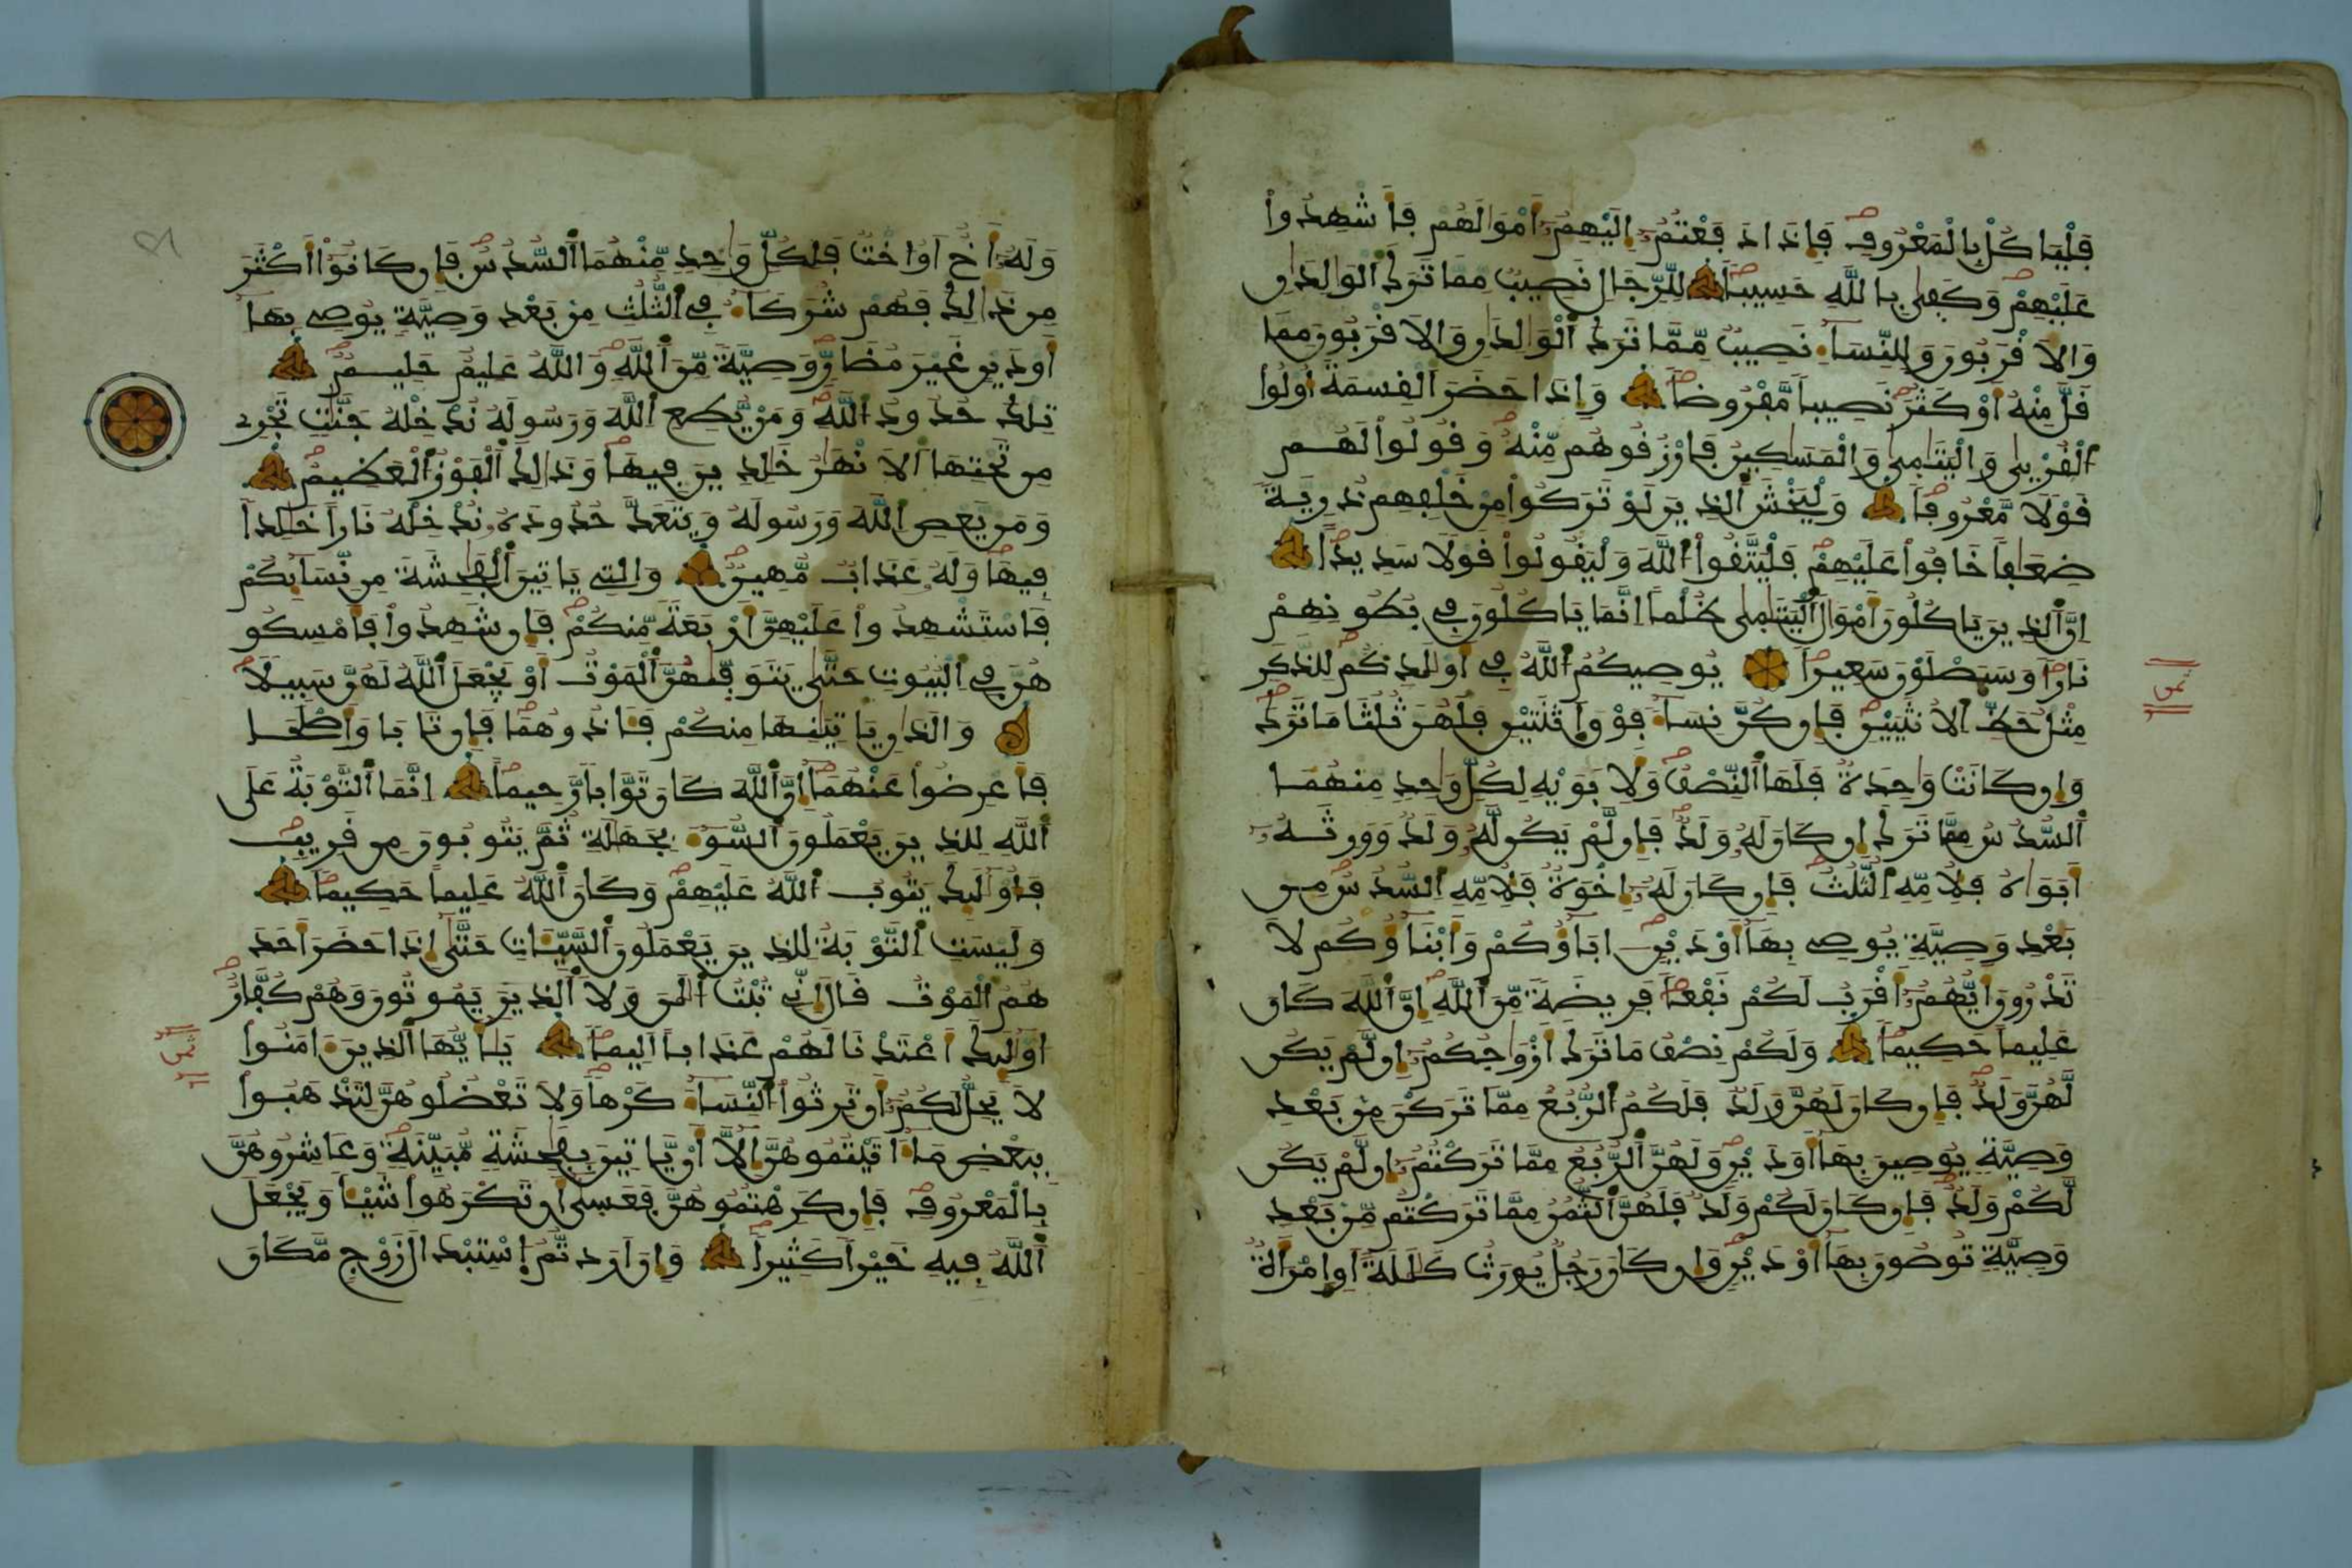 فَلْيَاكُلْ بِالْمَعْرُوفِ فَإِذَا دَفَعْتُمُ إِلَيْهِمُ أَمْوَالَهُمْ فَأَشْهِدُوا
عَلَيْهِمْ وَكَفَى بِاللَّهِ حَسِيباً لِلرِّجَالِ نَصِيبٌ مِمَّا تَرَكَ الْوَالِدَانِ
وَالاَقْرَبُونَ وَلِلنِّسَاءِ نَصِيبٌ مِّمَّا تَرَكَ الْوَالِدَانِ وَالاَقْرَبُونَ مِمَّا
قَلَّ مِنْهُ أَوْ كَثُرَ نَصِيباً مَّفْرُوضاً وَإِذَا حَضَرَ الْقِسْمَةَ أُوْلُوا
الْقُرْبَى وَالْيَتَامَى وَالْمَسَاكِينُ فَارْزُقُوهُم مِّنْهُ وَقُولُوا لَهُمْ
قَوْلاً مَّعْرُوفاً وَلْيَخْشَ الَّذِينَ لَوْ تَرَكُوا مِنْ خَلْفِهِمْ ذُرِّيَّةً
ضِعَافاً خَافُوا عَلَيْهِمْ فَلْيَتَّقُوا اللَّهَ وَلْيَقُولُوا قَوْلاً سَدِيداً
إِنَّ الَّذِينَ يَاكُلُونَ أَمْوَالَ الْيَتَامَى ظُلْماً إِنَّمَا يَاكُلُونَ فِي بُطُونِهِمْ
نَاراً وَسَيَصْلَوْنَ سَعِيراً يُوصِيكُمُ اللَّهُ فِي أَوْلَادِكُمْ لِلذَّكَرِ
مِثْلُ حَظِّ الاُنثَيَيْنِ فَإِن كُنَّ نِسَاءً فَوْقَ اثْنَتَيْنِ فَلَهُنَّ ثُلُثَا مَا تَرَكَ
وَإِن كَانَتْ وَاحِدَةٌ فَلَهَا النِّصْفُ وَلِأَبَوَيْهِ لِكُلِّ وَاحِدٍ مِنْهُمَا
السُّدُسُ مِمَّا تَرَكَ إِن كَانَ لَهُ وَلَدٌ فَإِن لَّمْ يَكُن لَّهُ وَلَدٌ وَوَرِثَهُ
أَبَوَاهُ فَلِأُمِّهِ الثُّلُثُ فَإِن كَانَ لَهُ إِخْوَةٌ فَلِأُمِّهِ السُّدُسُ مِن
بَعْدِ وَصِيَّةٍ يُوصِي بِهَا أَوْ دَيْنٍ ابَاؤُكُمْ وَأَبْنَاؤُكُمْ لاَ
تَدْرُونَ أَيُّهُمُ أَقْرَبُ لَكُمْ نَفْعاً فَرِيضَةً مِّنَ اللَّهِ إِنَّ اللَّهَ كَانَ
عَلِيماً حَكِيماً وَلَكُمْ نِصْفُ مَا تَرَكَ أَزْوَاجُكُمُ إِن لَّمْ يَكُن
لَّهُنَّ وَلَدٌ فَإِن كَانَ لَهُنَّ وَلَدٌ فَلَكُمُ الرُّبُعُ مِمَّا تَرَكْنَ مِن بَعْدِ
وَصِيَّةٍ يُوصِينَ بِهَا أَوْ دَيْنٍ وَلَهُنَّ الرُّبُعُ مِمَّا تَرَكْتُمُ إِن لَّمْ يَكُن
لَّكُمْ وَلَدٌ فَإِن كَانَ لَكُمْ وَلَدٌ فَلَهُنَّ الثُّمُنُ مِمَّا تَرَكْتُم مِّنْ بَعْدِ
وَصِيَّةٍ تُوصُونَ بِهَا أَوْ دَيْنٍ وَإِن كَانَ رَجُلٌ يُورَثُ كَلَالَةً أَوِ امْرَأَةٌ
ثمن
وَلَهُ أَخٌ اَوُ اخْتٌ فَلِكُلِّ وَاحِدٍ مِّنْهُمَا السُّدُسُ فَإِن كَانُوا أَكْثَرَ
مِن ذَالِكَ فَهُمْ شُرَكَاءُ فِي الثُّلُثِ مِنْ بَعْدِ وَصِيَّةٍ يُوصِي بِهَا
أَوْ دَيْنٍ غَيْرَ مُضَارٍّ وَصِيَّةً مِّنَ اللَّهِ وَاللَّهُ عَلِيمٌ حَلِيمٌ
تِلْكَ حُدُودُ اللَّهِ وَمَنْ يُّطِعِ اللَّهَ وَرَسُولَهُ نُدْخِلْهُ جَنَّتٍ تَجْرِي
مِن تَحْتِهَا الاَنْهَارُ خَالِدِينَ فِيهَا وَذَالِكَ الْفَوْزُ الْعَظِيمُ
وَمَن يَعْصِ اللَّهَ وَرَسُولَهُ وَيَتَعَدَّ حُدُودَهُ نُدْخِلْهُ نَاراً خَالِداً
فِيهَا وَلَهُ عَذَابٌ مُّهِينٌ وَالَّتِي يَاتِينَ الْفَاحِشَةَ مِن نِّسَائِكُمْ
فَاسْتَشْهِدُوا عَلَيْهِنَّ أَرْبَعَةً مِّنكُمْ فَإِن شَهِدُوا فَأَمْسِكُو
هُنَّ فِي الْبُيُوتِ حَتَّى يَتَوَفَّاهُنَّ الْمَوْتُ أَوْ يَجْعَلَ اللَّهُ لَهُنَّ سَبِيلاً
وَالَّذَانِ يَاتِيَانِهَا مِنكُمْ فَئَاذُوهُمَا فَإِن تَابَا وَأَصْلَحَا
فَأَعْرِضُوا عَنْهُمَا إِنَّ اللَّهَ كَانَ تَوَّاباً رَّحِيماً إِنَّمَا التَّوْبَةُ عَلَى
اللَّهِ لِلَّذِينَ يَعْمَلُونَ السُّوءَ بِجَهَالَةٍ ثُمَّ يَتُوبُونَ مِن قَرِيبٍ
فَأُوْلَئِكَ يَتُوبُ اللَّهُ عَلَيْهِمْ وَكَانَ اللَّهُ عَلِيماً حَكِيماً
وَلَيْسَتِ التَّوْبَةُ لِلَّذِينَ يَعْمَلُونَ السَّيِّئَاتِ حَتَّى إِذَا حَضَرَ أَحَدَ
هُمُ الْمَوْتُ قَالَ إِنِّي تُبْتُ الَنَ وَلاَ الَّذِينَ يَمُوتُونَ وَهُمْ كُفَّارٌ
أُوْلَئِكَ أَعْتَدْنَا لَهُمْ عَذَاباً أَلِيماً يَا أَيُّهَا الَّذِينَ ءَامَنُوا
لاَ يَحِلُّ لَكُمُ أَن تَرِثُوا النِّسَاءَ كَرْهاً وَلاَ تَعْضُلُوهُنَّ لِتَذْهَبُوا
بِبَعْضِ مَا ءَاتَيْتُمُوهُنَّ إِلاَّ أَنْ يَّاتِينَ بِفَاحِشَةٍ مُّبَيِّنَةٍ وَعَاشِرُوهُنَّ
بِالْمَعْرُوفِ فَإِن كَرِهْتُمُوهُنَّ فَعَسَى أَن تَكْرَهُوا شَيْئاً وَيَجْعَلَ
اللَّهُ فِيهِ خَيْراً كَثِيراً وَإِنَ أَرَدتُّمُ اسْتِبْدَالَ زَوْجٍ مَّكَانَ
ثمن